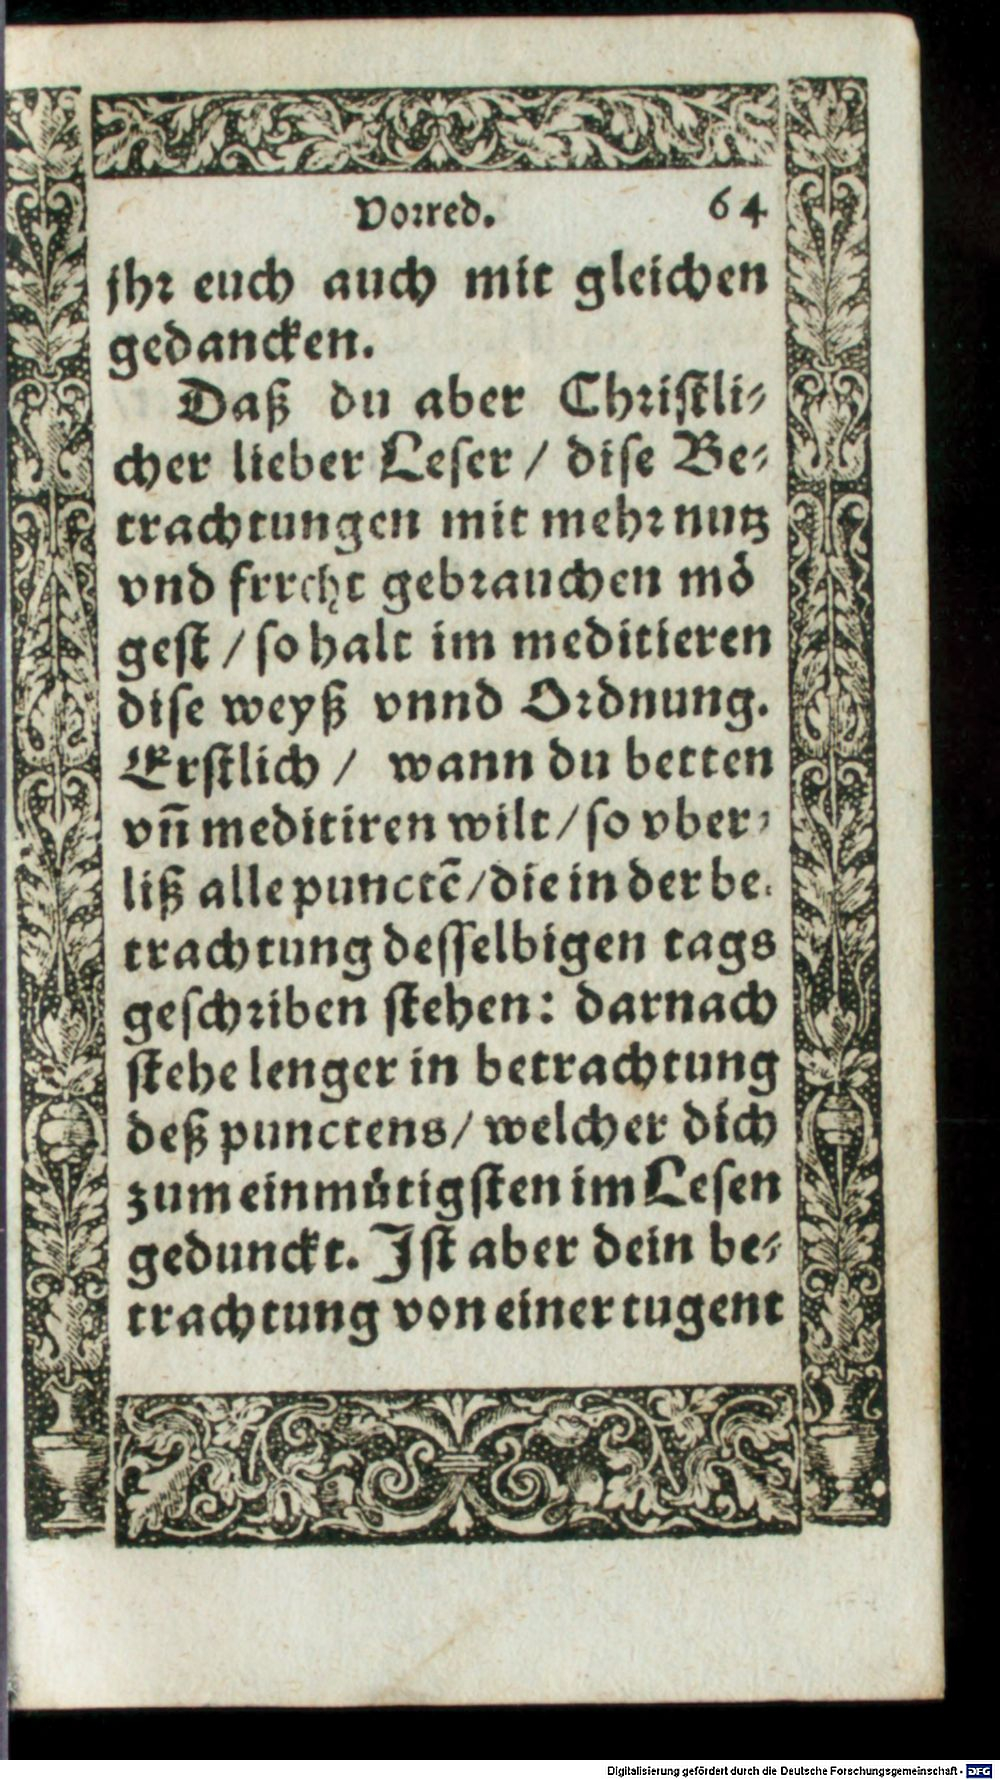 Vorred. 64
jhr euch auch mit gleichen
gedancken.
Daß du aber Christli-
cher lieber Leser / dise Be-
trachtungen mit mehr nutz
vnd frrcht gebrauchen mö
gest / so halt im meditieren
dise weyß vnnd Ordnung.
Erstlich / wann du betten
vñ meditiren wilt / so vber-
liß alle punctẽ / die in der be-
trachtung desselbigen tags
geschriben stehen: darnach
stehe lenger in betrachtung
deß punctens / welcher dich
zum einmütigsten im Lesen
gedunckt. Ist aber dein be-
trachtung von einer tugent
Digitalisierung gefördert durch die Deutsche Forschungsgemeinschaft - DFG